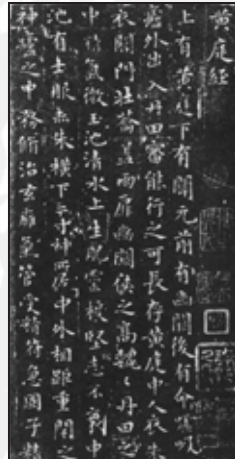 黃庭經
上有黃庭下有關元前有幽闕後有命噓吸
廬外出入丹田審能行之可長存黃庭中人衣朱
衣關門壯籥蓋兩扉幽闕俠之高魏〻丹田之
中精氣微玉池清水上生肥靈根堅志不衰中
池有士服赤朱橫下三寸神所居中外相距重閉之
神廬之中務脩治玄廱氣管受精符急固子精